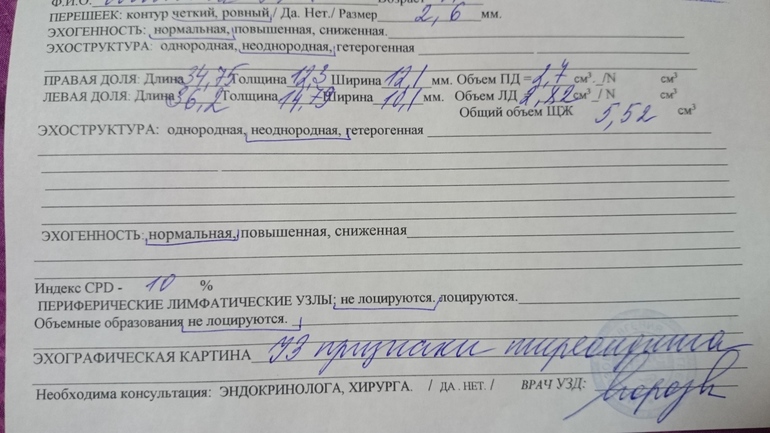 Ф.И.О.
ПЕРЕШЕЕК: контур четкий, ровный / Да. Нет./ Размер 2,6 мм.
ЭХОГЕННОСТЬ: нормальная, повышенная, сниженная.
ЭХОСТРУКТУРА: однородная, неоднородная, гетерогенная
ПРАВАЯ ДОЛЯ: Длина 34,75 Толщина 12,3 Ширина 12,1 мм. Объем ПД = 2,7 см³. /N см³
ЛЕВАЯ ДОЛЯ: Длина 36,2 Толщина 14,79 Ширина 10,1 мм. Объем ЛД = 2,82 см³. / N см³
Общий объем ЩЖ 5,52 см³
ЭХОСТРУКТУРА: однородная, неоднородная, гетерогенная
ЭХОГЕННОСТЬ: нормальная, повышенная, сниженная
Индекс CPD - 10 %
ПЕРИФЕРИЧЕСКИЕ ЛИМФАТИЧЕСКИЕ УЗЛЫ: не лоцируются. лоцируются.
Объемные образования не лоцируются.
ЭХОГРАФИЧЕСКАЯ КАРТИНА УЗ признаки тиреоидита
Необходима консультация: ЭНДОКРИНОЛОГА, ХИРУРГА. / ДА . НЕТ. / ВРАЧ УЗД: